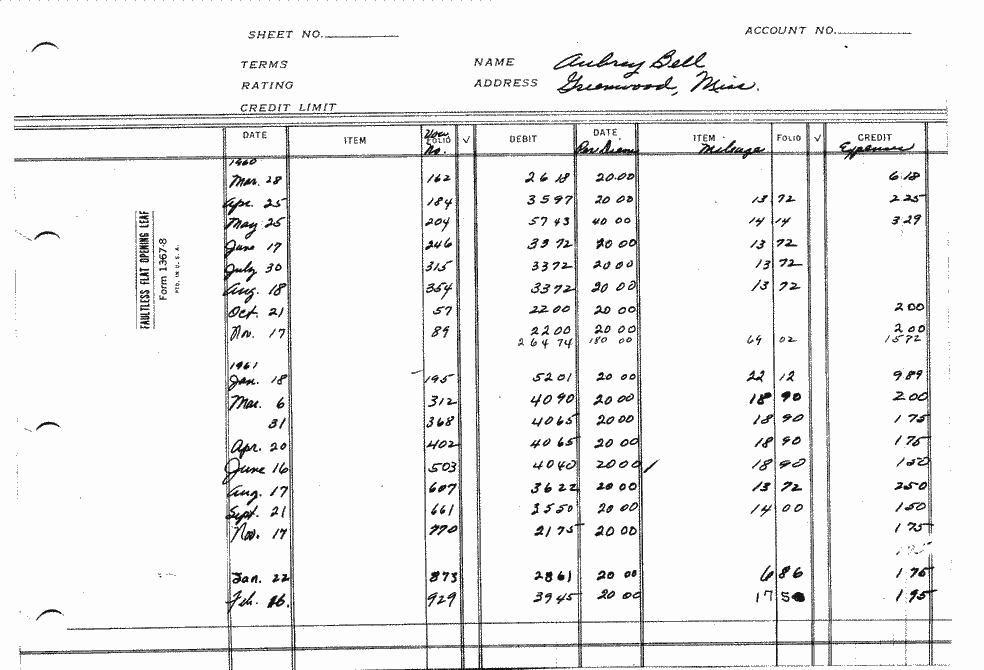 SHEET NO.
ACCOUNT NO.
TERMS
NAME Aubrey Bell
RATING
ADDRESS Greenwood, Miss.
CREDIT LIMIT
DATE ITEM FOLIO √ DEBIT DATE ITEM FOLIO √ CREDIT
Vou. No. Per Diem Mileage Expenses
1960
Mar. 28 162 26 18 20 00 6 18
Apr. 25 184 35 97 20 00 13 72 2 25
May 25 204 57 43 40 00 14 14 3 29
June 17 246 33 72 20 00 13 72
July 30 315 33 72 20 00 13 72
Aug. 18 354 33 72 20 00 13 72
Oct. 21 57 22 00 20 00 2 00
Nov. 17 89 22 00 20 00 2 00
264 74 180 00 69 02 15 72
1961
Jan. 18 195 52 01 20 00 22 12 9 89
Mar. 6 312 40 90 20 00 18 90 2 00
31 368 40 65 20 00 18 90 1 75
Apr. 20 402 40 65 20 00 18 90 1 75
June 16 503 40 40 20 00 18 90 1 50
Aug. 17 607 36 22 20 00 13 72 2 50
Sept. 21 661 35 50 20 00 14 00 1 50
Nov. 17 770 21 75 20 00 1 75
Jan. 22 873 28 61 20 00 6 86 1 75
Feb. 26. 929 39 45 20 00 17 50 1 95
FAULTLESS FLAT OPENING LEAF
Form 1367-8
PTD. IN U.S.A.